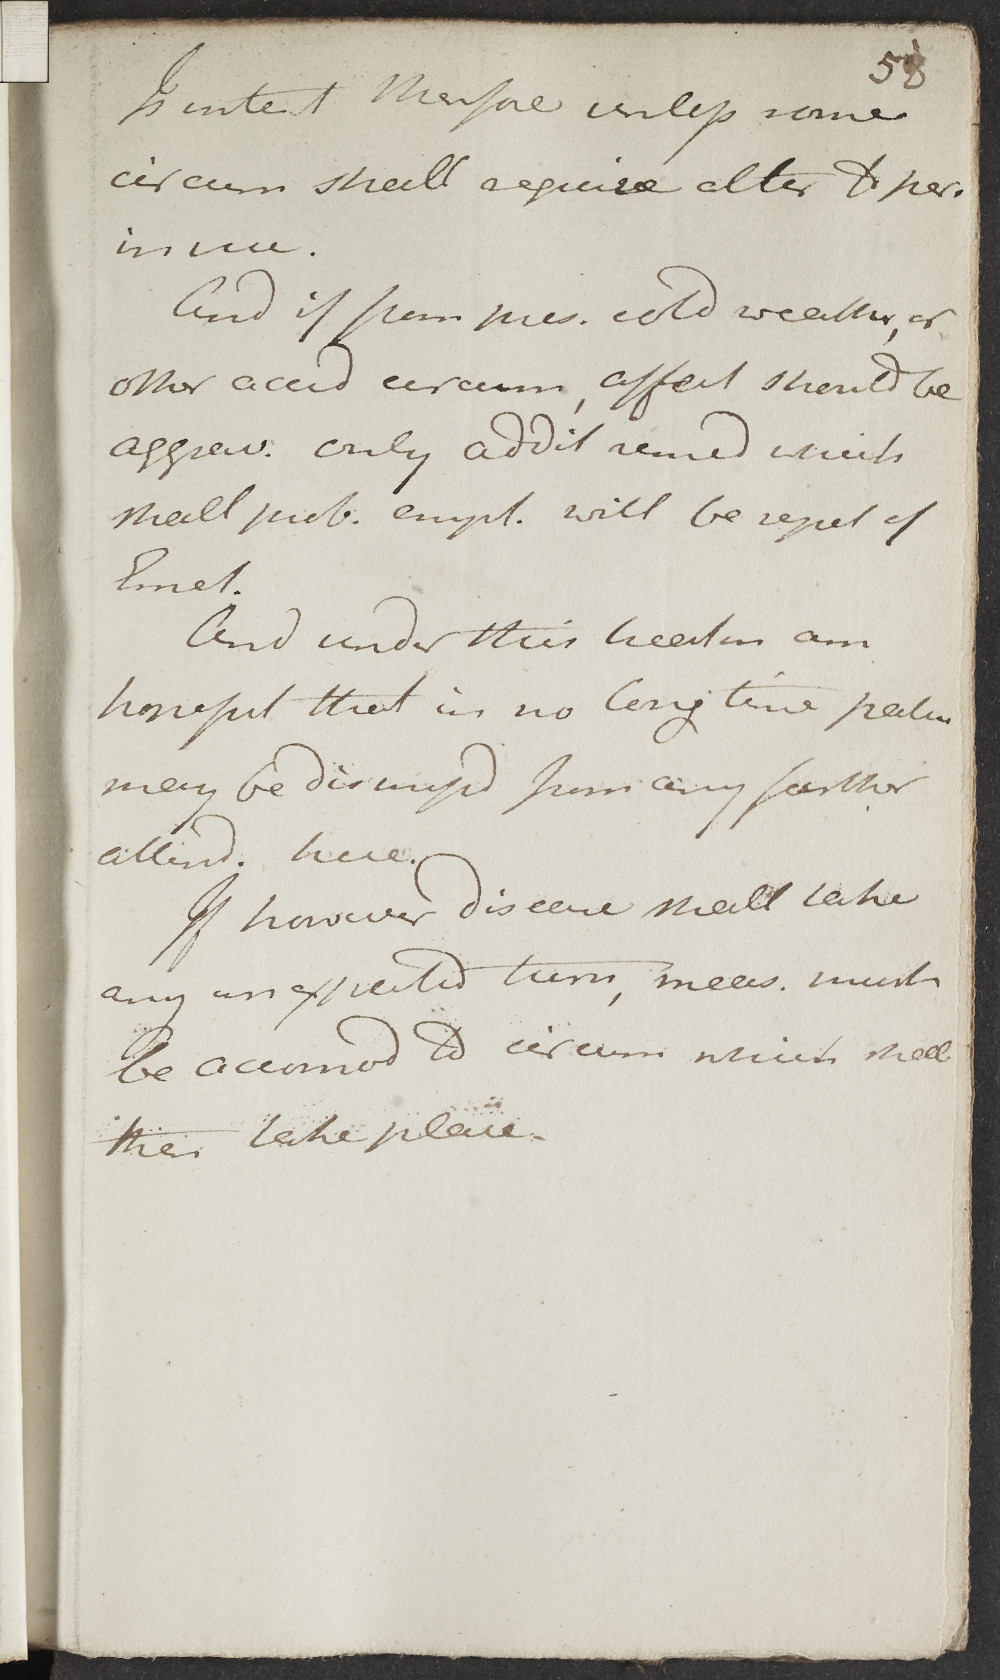 58
Is intent therfore unless some
circum shall require alter to per.
in use.
And if from pres. cold weather, or
other accid circum, affect should be
aggrav. only addit remed which
shall prob. empl. will be repet of
Emet.
And under this treatm am
hopeful that in no long time patien
may be dismiss'd from any further
attend. here.
If however disease shall take
any unexpected turn, meas. must
be accomod to circum which shall
then take place.